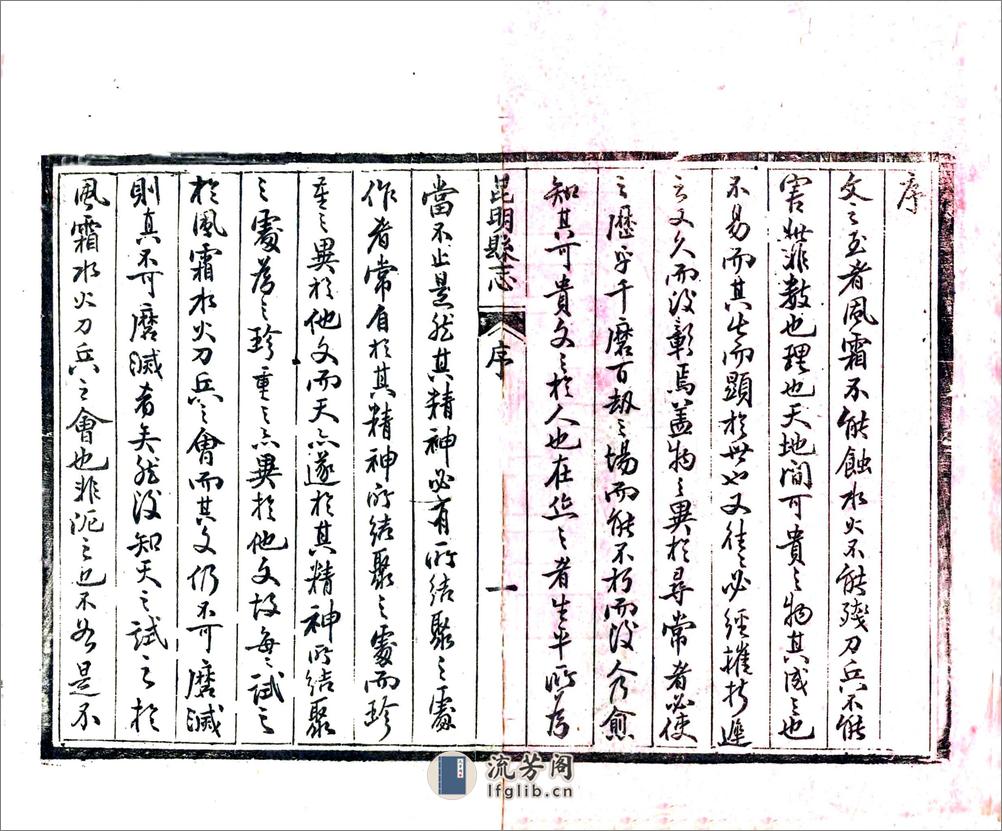 序
文之至者風霜不能蝕水火不能殘刀兵不能
害無非數也理也天地間可貴之物其成之也
不易而其生而顯於世也又往之必經摧折進
之又久而後彰焉蓋物之異於尋常者必使
之歷乎千磨百劫之場而能不朽而後人乃愈
知其可貴文之於人也在作之者生平所為
昆明縣志 序 一
當不止是然其精神必有所結聚之處
作者常自於其精神所結聚之處而珍
重之異於他文而天亦遂於其精神所結聚
之處為之珍重之亦異於他文故每之試之
於風霜水火刀兵之會而其文仍不可磨滅
則真不可磨滅者矣然後知天之試之於
風霜水火刀兵之會也非泥之也不如是不
流芳阁
lfglib.cn